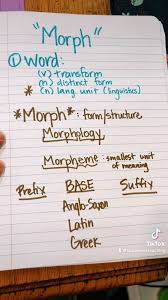 "Morph"
① Word:
(v) transform
(n) distinct form
* (n) lang unit (linguistics)
*Morph*: form/structure
Morphology
Morpheme: smallest unit
of meaning
Prefix BASE Suffix
Anglo-Saxon
Latin
Greek
TikTok